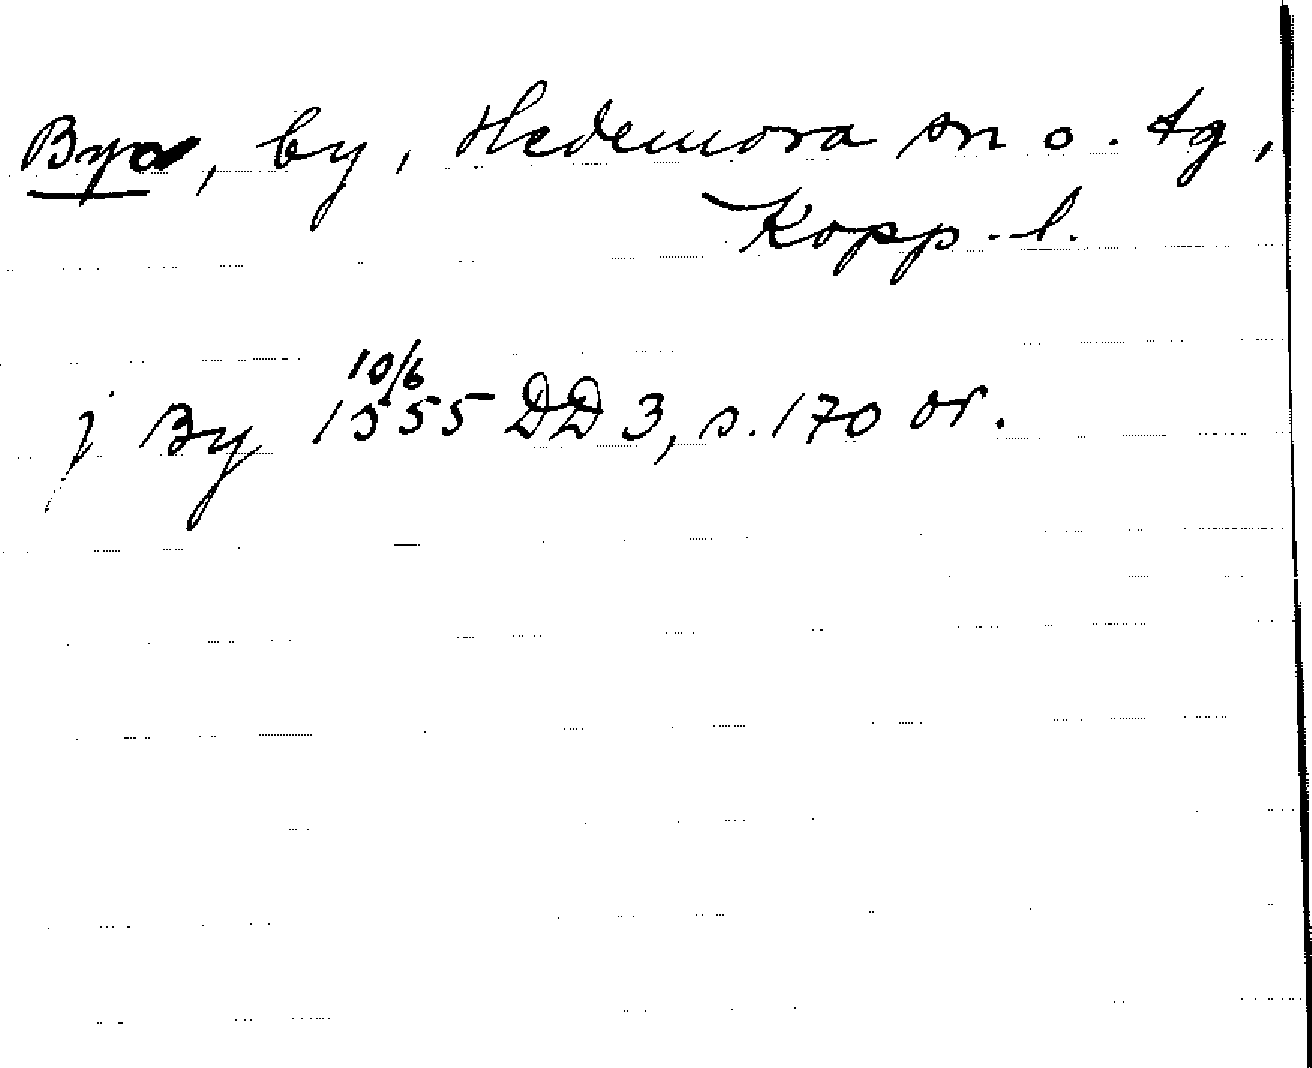 Bya, by, Hedemora sn o. tg,
Kopp. l.
10/6
j By 1555 DD 3, s. 170 or.